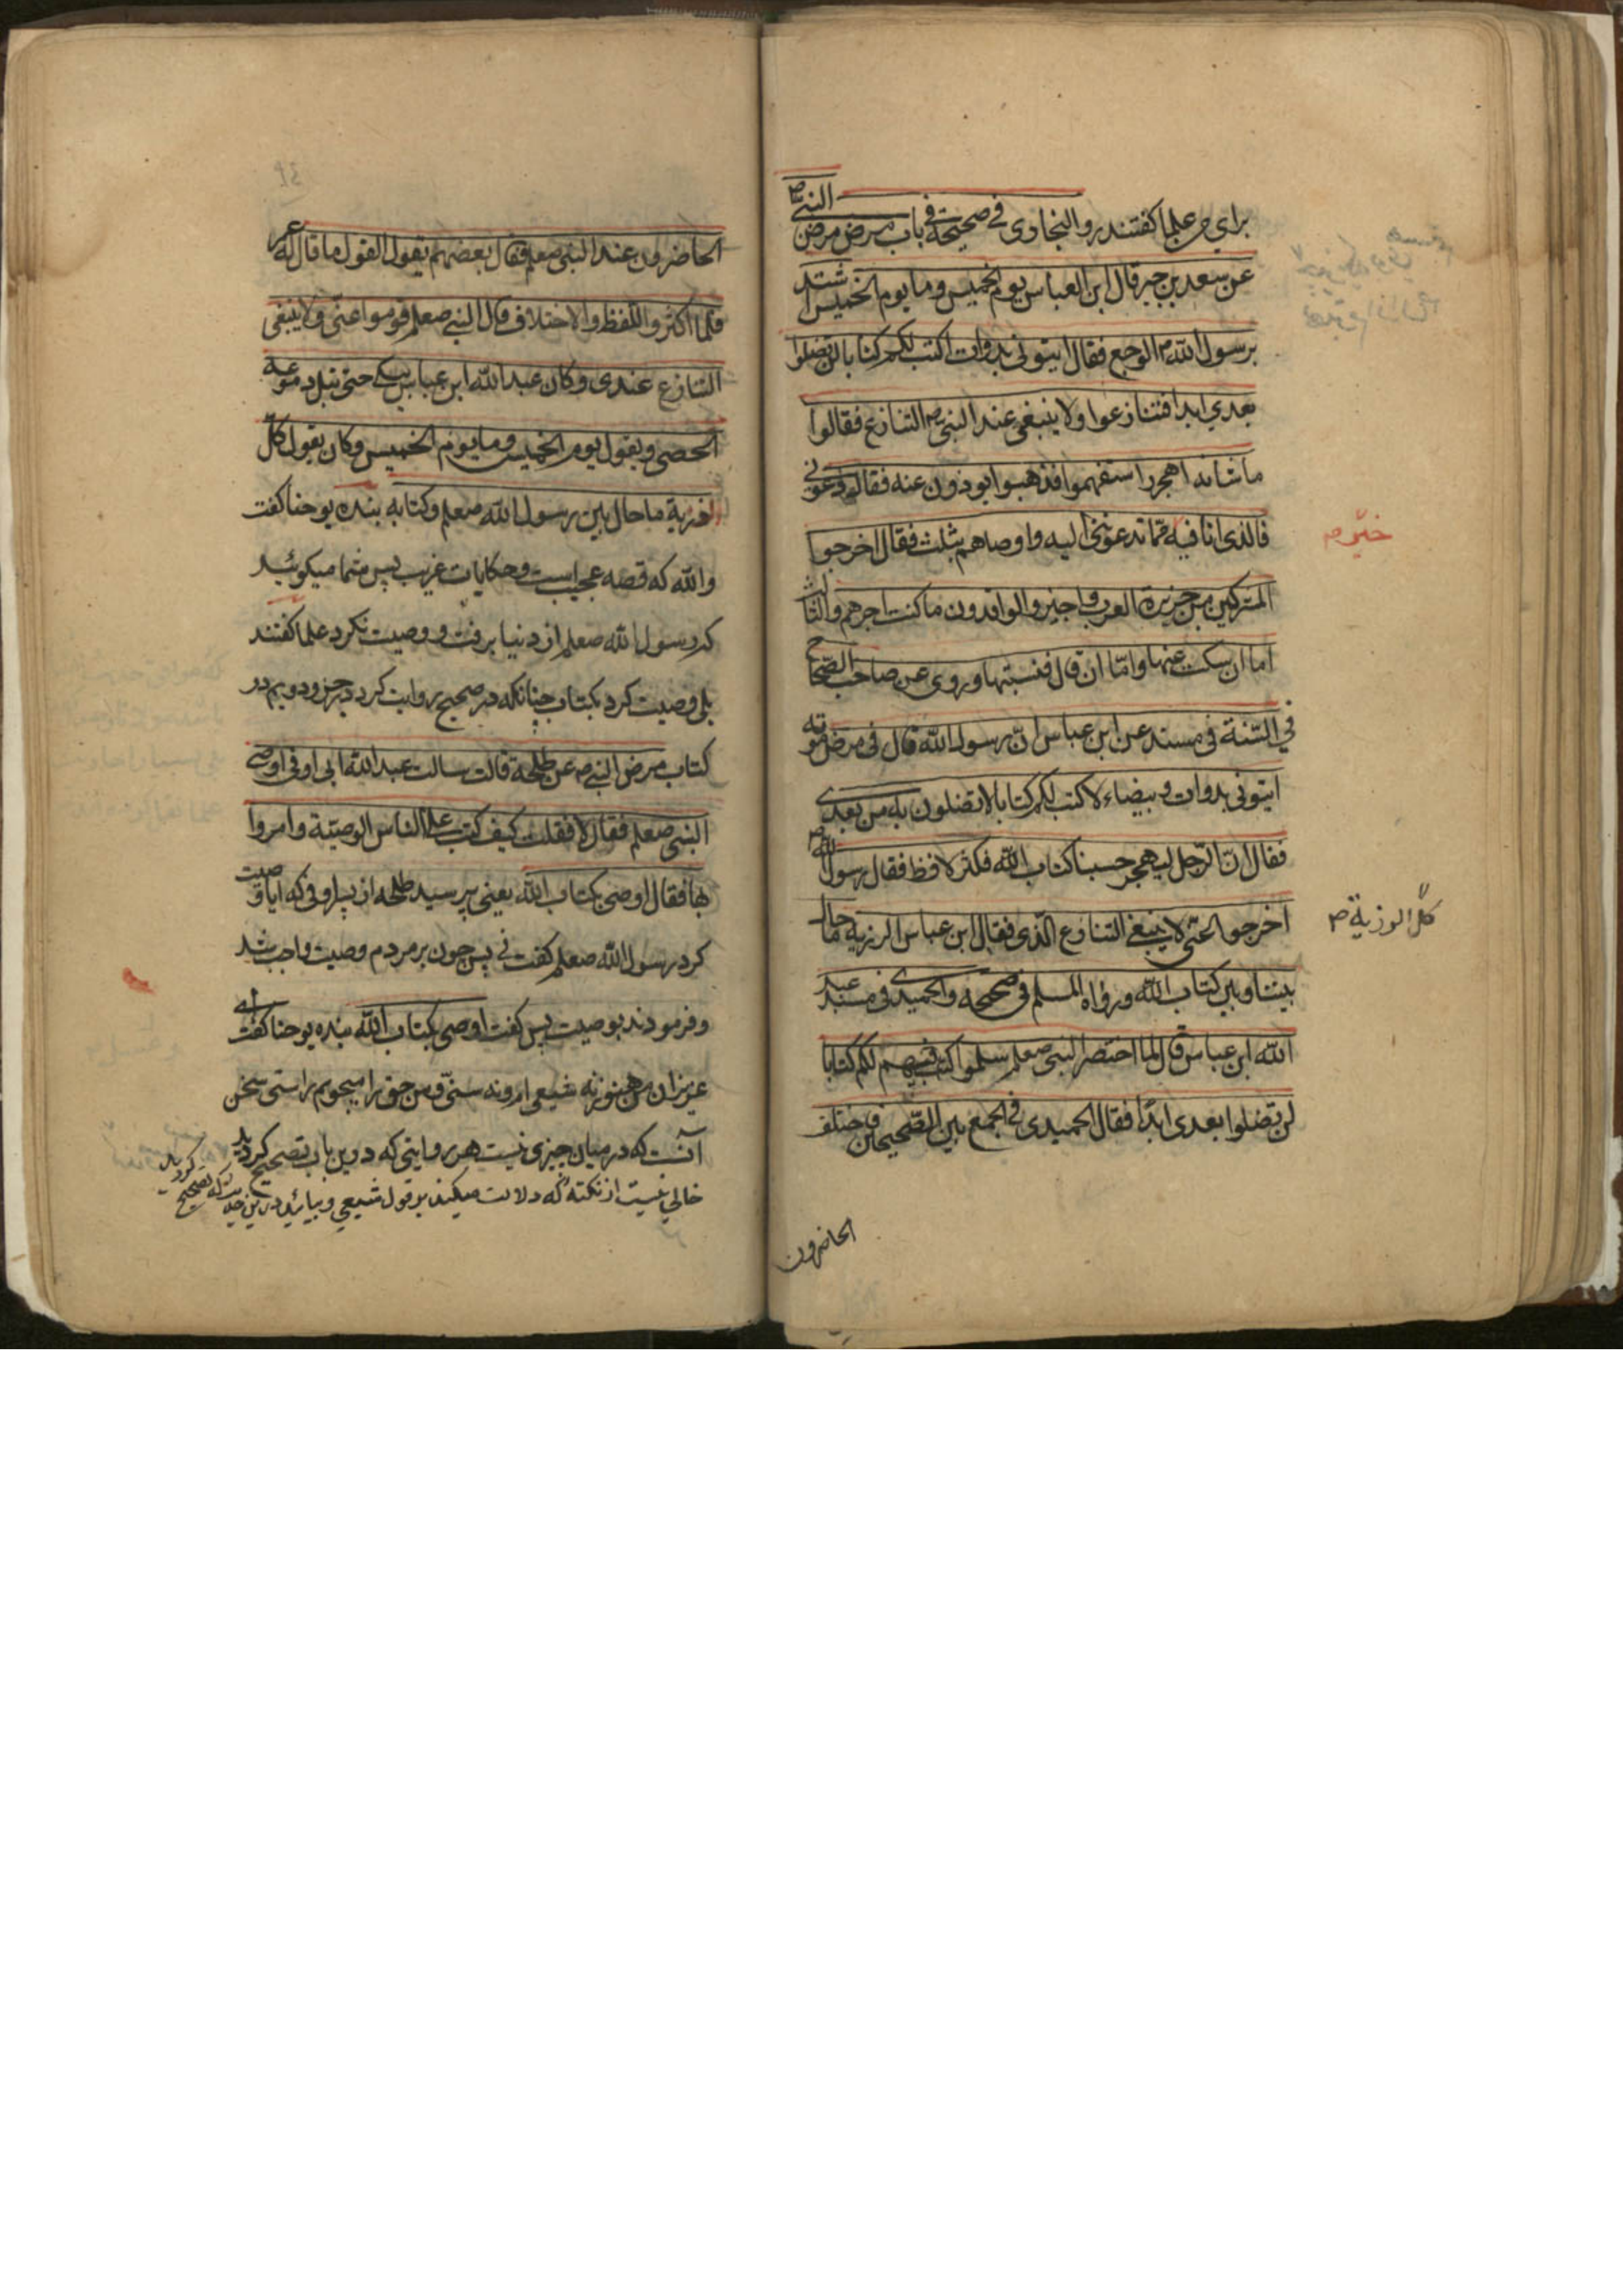 برای من علما کفتند روا البخاوی فی صحیحة فی باب مرض مرض النبی ص
عن سعد بن جبر قال ابن العباس یوم الخمیس وما یوم الخمیس اشتد
برسول الله ص الوجع فقال ایتونی بدوات اکتب لکم کتابا لن تضلوا
بعدی ابدا فتنازعوا ولا ینبغی عند النبی ص التنازع فقالوا
ماشانه اهجر استفهموا فذهبوا یوذون عنه فقال دعونی
فالذی انا فیه مما تدعوننی الیه واوصاهم بثلث فقال اخرجوا
خیر ص
المشرکین من جزیرة العرب واجیزو الوافدون ما کنت اجرهم والثالث
اما ان سکت عنها واما ان قال فنسیتها وروی عن صاحب الصحاح
فی السنة فی مسند عن ابن عباس ان رسول الله قال فی مرض موته
ایتونی بدوات وبیضاء لاکتب لکم کتابا لا تضلون به من بعدی
فقال ان الرجل لیهجر حسبنا کتاب الله فکثر لافظ فقال رسول الله ص
اخرجوا عنی لا ینبغی التنازع الذی فقال ابن عباس الرزیه ما حال
کل الرزیة ص
بیننا وبین کتاب الله ورواه المسلم فی صحیحه والحمیدی فی مسند عبد
الله ابن عباس قال لما احتضر النبی صعلم سلموا اکتب لکم کتابا
لن تضلوا بعدی ابدا فقال الحمیدی فی الجمع بین الصحیحین فاختلف
الحاضرون
الحاضرون عند النبی صعلم فقال بعضهم یقول القول ما قال له عمر
فلما اکثروا اللفظ والاختلاف قال النبی صعلم قوموا عنی ولا ینبغی
التنازع عندی وکان عبد الله ابن عباس یبکی حتی تبل دموعه
الحصی ویقول یوم الخمیس وما یوم الخمیس وکان یقول کل
الرزیة ما حال بین رسول الله صعلم وکتابه بنده یوحنا کفت
والله که قصه عجیب است وحکایات غریب پس شما میکوئید
که رسول الله صعلم از دنیا برفت و وصیت نکرد علما کفتند
بلی وصیت کرد بکتاب چنانکه در صحیح روایت کرد در جزو دویم در
کتاب مرض النبی ص عن طلحة قالت سالت عبد الله ابی اوفی اوصی
النبی صعلم فقال لا فقلت کیف کتب علی الناس الوصیة وامروا
بها فقال اوصی بکتاب الله یعنی پرسید طلحه از پسر اوفی که ایا وصیت
کرد رسول الله صعلم کفت نی پس چون بر مردم وصیت واجب شد
وفرمودند بوصیت پس کفت اوصی بکتاب الله بنده یوحنا کفت ای
عزیزان من هنوز نه شیعی ام ونه سنی ومن حق را میجویم راستی سخن
آنست که در میان چیزی نیست هر روایتی که درین باب تصحیح کردید
خالی نیست از نکته که دلالت میکند بر قول شیعی وبیائید درین حدیث که تصحیح کردید